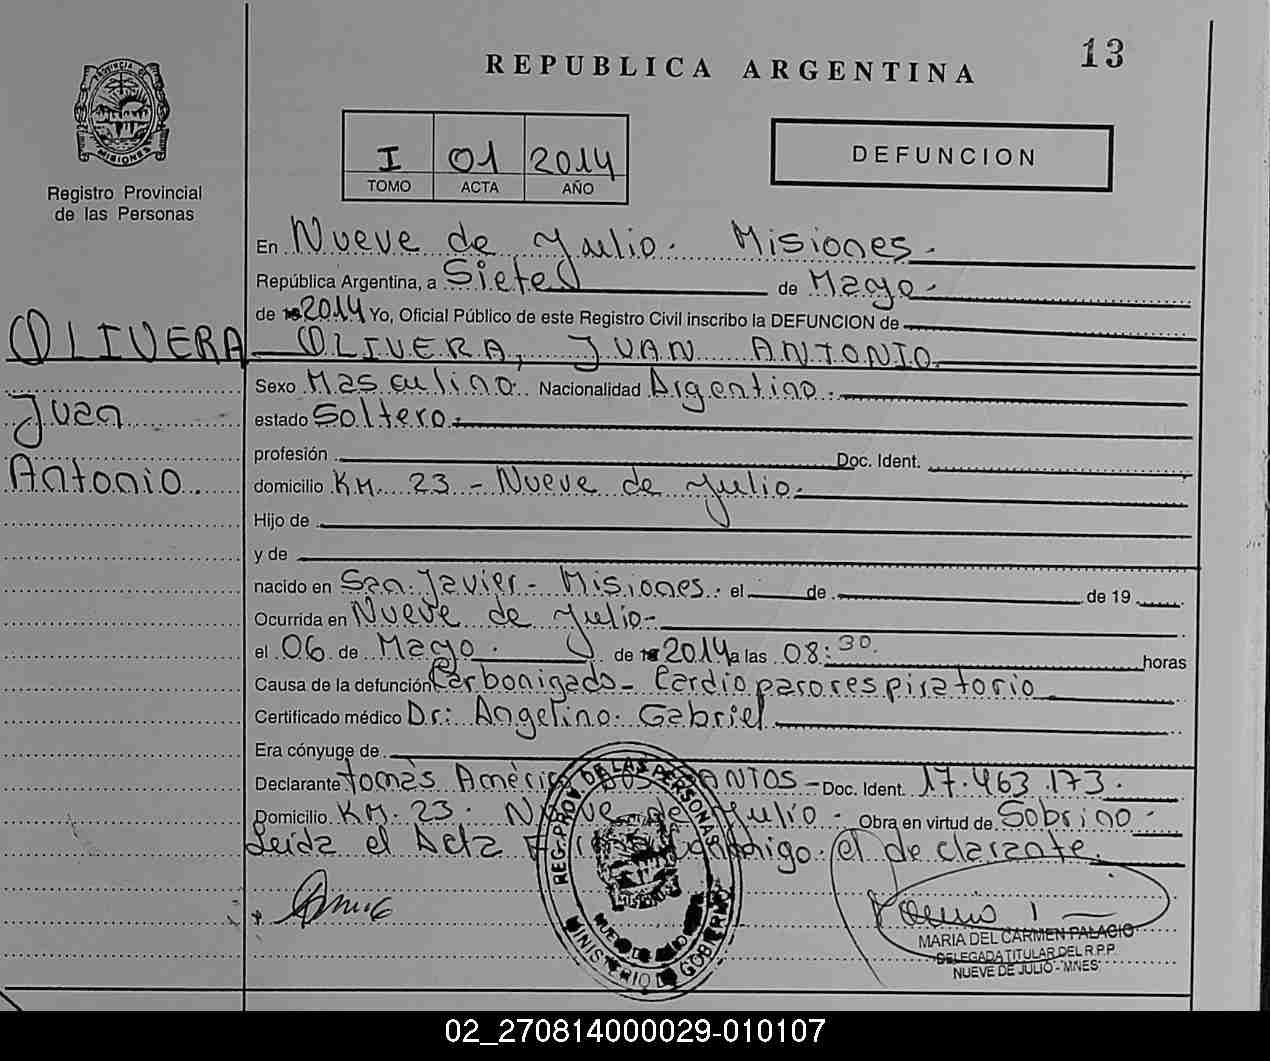 13
REPUBLICA ARGENTINA
PROVINCIA DE
MISIONES
Registro Provincial
de las Personas
I 01 2014
TOMO ACTA AÑO
DEFUNCION
En Nueve de Julio. Misiones.
República Argentina, a Siete de Mayo.
de 2014 Yo, Oficial Público de este Registro Civil inscribo la DEFUNCION de
OLIVERA
OLIVERA, JUAN ANTONIO
Juan
Antonio
Sexo Masculino. Nacionalidad Argentino.
estado Soltero.
profesión Doc. Ident.
domicilio KM. 23 - Nueve de Julio.
Hijo de
y de
nacido en San Javier - Misiones. el de de 19
Ocurrida en Nueve de Julio-
el 06 de Mayo. de 2014 a las 08:30. horas
Causa de la defunción Carbonizado - Cardioparorespiratorio
Certificado médico Dr: Angelino. Gabriel
Era cónyuge de
Declarante Tomás Améric DOS SANTOS - Doc. Ident. 17.463.173.
Domicilio KM. 23. Nueve de Julio - Obra en virtud de Sobrino-
Leida el Acta conmigo. el declarante.
REG. PROV. DE LAS PERSONAS
MISIONES
NUEVE DE JULIO
MINISTERIO DE GOBIERNO
MARIA DEL CARMEN PALACIO
DELEGADA TITULAR DEL R.P.P.
NUEVE DE JULIO - MNES
02_270814000029-010107